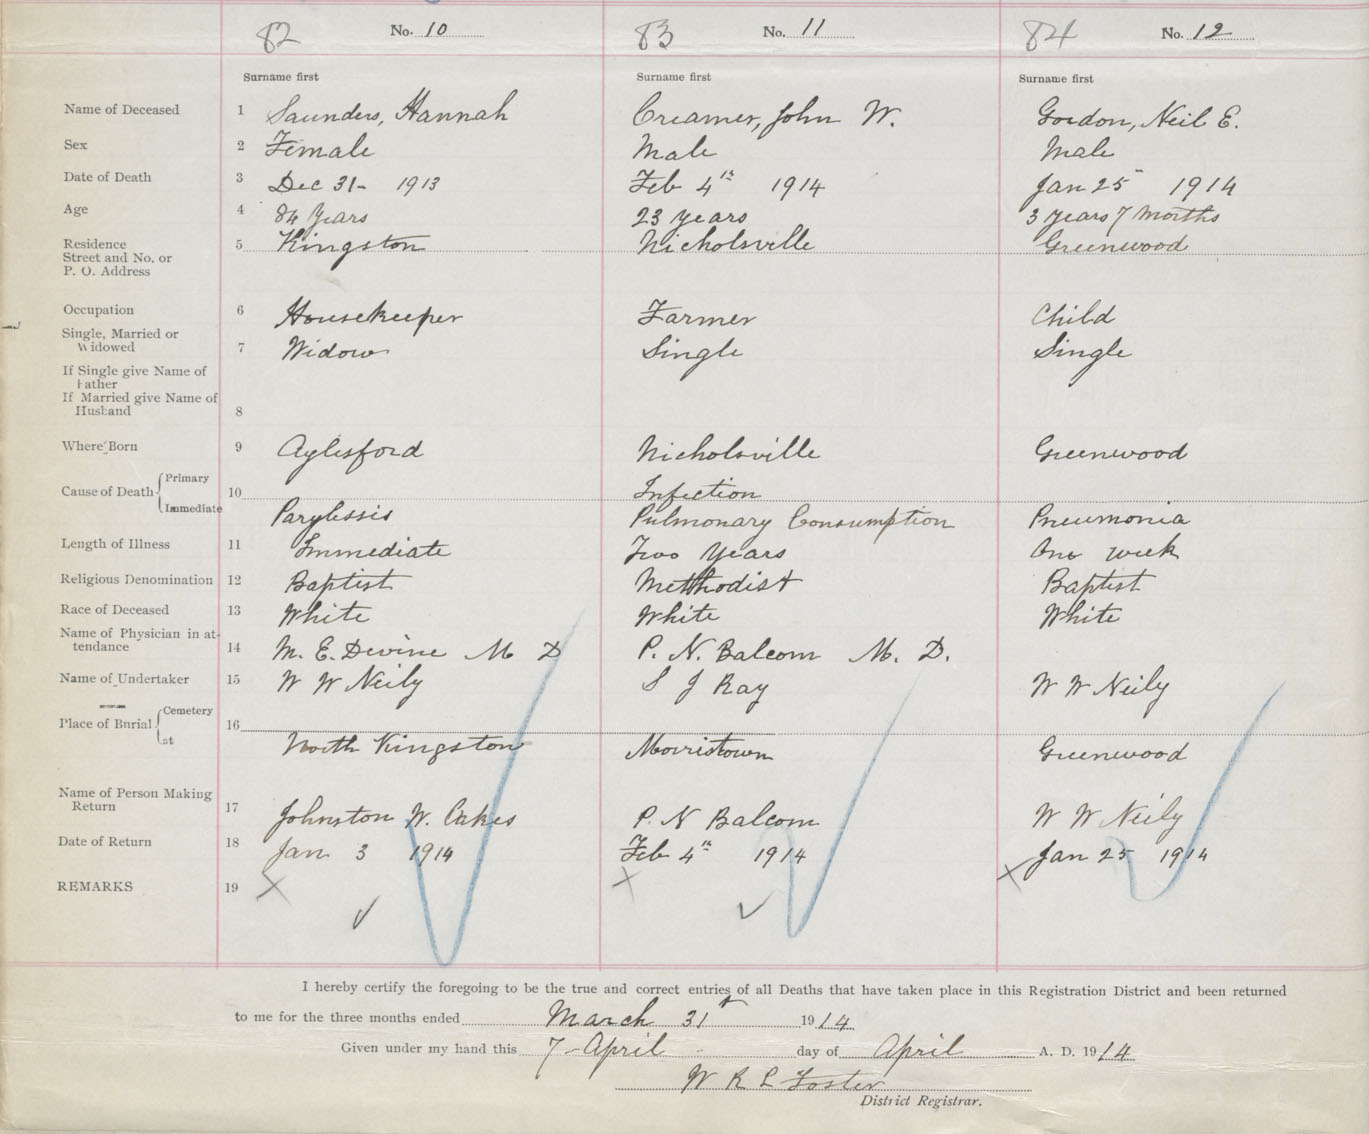 82 No. 10 83 No. 11 84 No. 12
Surname first Surname first Surname first
Name of Deceased 1 Saunders, Hannah Creamer, John W. Gordon, Neil E.
Sex 2 Female Male Male
Date of Death 3 Dec 31- 1913 Feb 4th 1914 Jan 25 1914
Age 4 84 years 23 years 3 years 7 months
Residence 5 Kingston Nicholsville Greenwood
Street and No. or
P. O. Address
Occupation 6 Housekeeper Farmer Child
Single, Married or
Widowed 7 Widow Single Single
If Single give Name of
Father
If Married give Name of
Husband 8
Where Born 9 Aylesford Nicholsville Greenwood
Cause of Death Primary 10 Infection
Immediate Parylessis Pulmonary Consumption Pneumonia
Length of Illness 11 Immediate Two Years One week
Religious Denomination 12 Baptist Methodist Baptist
Race of Deceased 13 White White White
Name of Physician in at-
tendance 14 M. E. Devine M D P. N. Balcom M. D.
Name of Undertaker 15 W W Neily S J Ray W W Neily
Place of Burial Cemetery 16
at North Kingston Morristown Greenwood
Name of Person Making
Return 17 Johnston W. Oakes P. N Balcom W W Neily
Date of Return 18 Jan 3 1914 Feb 4th 1914 Jan 25 1914
REMARKS 19
I hereby certify the foregoing to be the true and correct entries of all Deaths that have taken place in this Registration District and been returned
to me for the three months ended March 31st 1914
Given under my hand this 7-April day of April A. D. 1914
W R L Foster
District Registrar.